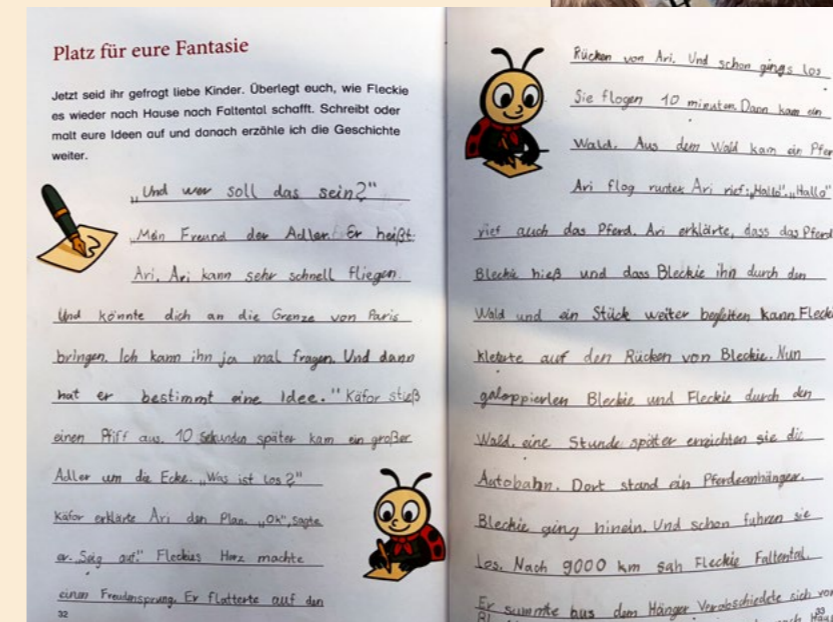 Platz für eure Fantasie
Jetzt seid ihr gefragt liebe Kinder. Überlegt euch, wie Fleckie
es wieder nach Hause nach Faltental schafft. Schreibt oder
malt eure Ideen auf und danach erzähle ich die Geschichte
weiter.
„Und wer soll das sein?"
„Mein Freund der Adler. Er heißt
Ari. Ari kann sehr schnell fliegen.
Und könnte dich an die Grenze von Paris
bringen. Ich kann ihn ja mal fragen. Und dann
hat er bestimmt eine Idee." Käfor stieß
einen Pfiff aus. 10 Sekunden später kam ein großer
Adler um die Ecke. „Was ist los?"
Käfor erklärte Ari den Plan. „Ok", sagte
er. auf." Fleckies Herz machte
einen Freudensprung. Er flatterte auf den
32
Rücken von Ari. Und schon gings los.
Sie flogen 10 minuten. Dann kam ein
Wald. Aus dem Wald kam ein Pfer
Ari flog runter Ari rief: „Hallo". „Hallo"
rief auch das Pferd. Ari erklärte, dass das Pferd
Bleckie hieß und dass Bleckie ihn durch den
Wald und ein Stück weiter begleiten kann Flecki
kletterte auf den Rücken von Bleckie. Nun
galoppierten Bleckie und Fleckie durch den
Wald. eine Stunde später erreichten sie die
Autobahn. Dort stand ein Pferdeanhänger.
Bleckie ging hinein. Und schon fuhren sie
los. Nach 9000 km sah Fleckie Faltental.
Er summte aus dem Hänger Verabschiedete sich von
33